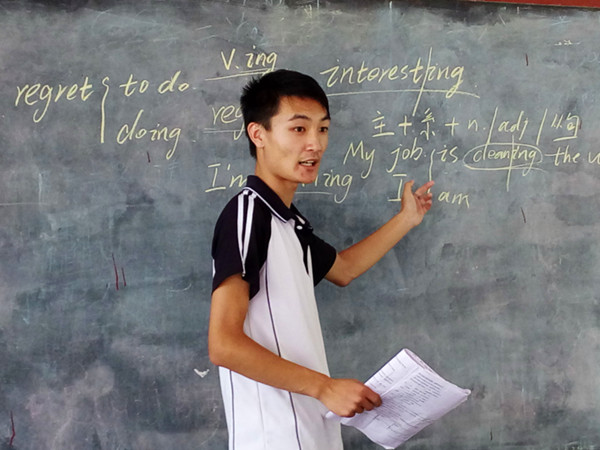 V. ing
regret { to do
doing
reg
interest/ing
主+系+n./adj/从句
My job is cleaning the
I'm ing
I am